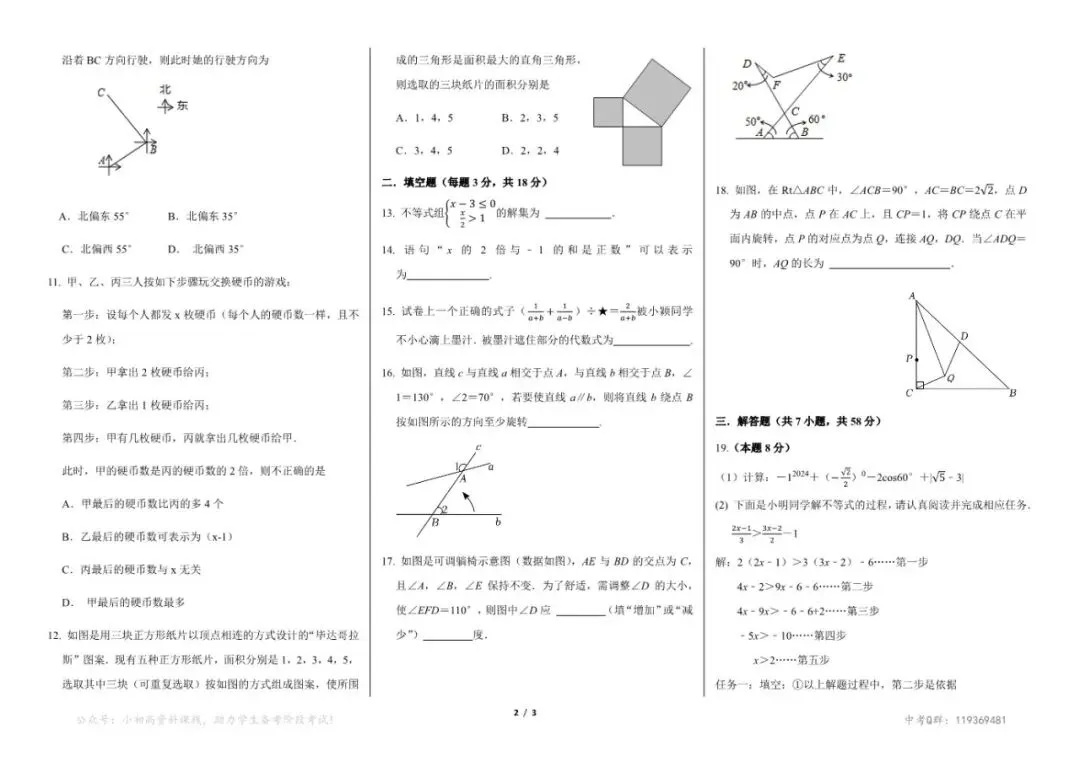 沿着 BC 方向行驶，则此时她的行驶方向为
C
北
东
A
B
A．北偏东 55°
B．北偏东 35°
C．北偏西 55°
D． 北偏西 35°
11. 甲、乙、丙三人按如下步骤玩交换硬币的游戏：
第一步：设每个人都发 x 枚硬币（每个人的硬币数一样，且不
少于 2 枚）；
第二步：甲拿出 2 枚硬币给丙；
第三步：乙拿出 1 枚硬币给丙；
第四步：甲有几枚硬币，丙就拿出几枚硬币给甲．
此时，甲的硬币数是丙的硬币数的 2 倍，则不正确的是
A．甲最后的硬币数比丙的多 4 个
B．乙最后的硬币数可表示为（x-1）
C．丙最后的硬币数与 x 无关
D． 甲最后的硬币数最多
12. 如图是用三块正方形纸片以顶点相连的方式设计的“毕达哥拉
斯”图案．现有五种正方形纸片，面积分别是 1，2，3，4，5，
选取其中三块（可重复选取）按如图的方式组成图案，使所围
成的三角形是面积最大的直角三角形，
则选取的三块纸片的面积分别是
A．1，4，5
B．2，3，5
C．3，4，5
D．2，2，4
二．填空题（每题 3 分，共 18 分）
13. 不等式组{x－3≤0 x/2＞1 的解集为 ________．
14. 语句“x 的 2 倍与﹣1 的和是正数”可以表示
为________．
15. 试卷上一个正确的式子（1/(a+b)＋1/(a−b)）÷★＝2/(a+b)被小颖同学
不小心滴上墨汁．被墨汁遮住部分的代数式为________．
16. 如图，直线 c 与直线 a 相交于点 A，与直线 b 相交于点 B，∠
1＝130°，∠2＝70°，若要使直线 a∥b，则将直线 b 绕点 B
按如图所示的方向至少旋转________．
c
1
a
A
2
B
b
17. 如图是可调躺椅示意图（数据如图），AE 与 BD 的交点为 C，
且∠A，∠B，∠E 保持不变．为了舒适，需调整∠D 的大小，
使∠EFD＝110°，则图中∠D 应 ________（填“增加”或“减
少”）________度．
D
E
20°
F
30°
C
50°
60°
A
B
18. 如图，在 Rt△ABC 中，∠ACB＝90°，AC＝BC＝2√2，点 D
为 AB 的中点，点 P 在 AC 上，且 CP＝1，将 CP 绕点 C 在平
面内旋转，点 P 的对应点为点 Q，连接 AQ，DQ．当∠ADQ＝
90°时，AQ 的长为 ________．
A
D
P
Q
C
B
三．解答题（共 7 小题，共 58 分）
19.（本题 8 分）
（1）计算：－1²⁰²⁴＋（－√2/2）⁰－2cos60°＋|√5﹣3|
(2) 下面是小明同学解不等式的过程，请认真阅读并完成相应任务．
(2x−1)/3＞(3x−2)/2－1
解：2（2x﹣1）＞3（3x﹣2）﹣6……第一步
4x﹣2＞9x﹣6﹣6……第二步
4x﹣9x＞﹣6﹣6+2……第三步
﹣5x＞﹣10……第四步
x＞2……第五步
任务一：填空：①以上解题过程中，第二步是依据
公众号：小初高资料课线，助力学生备考阶段考试！
2 / 3
中考Q群：119369481